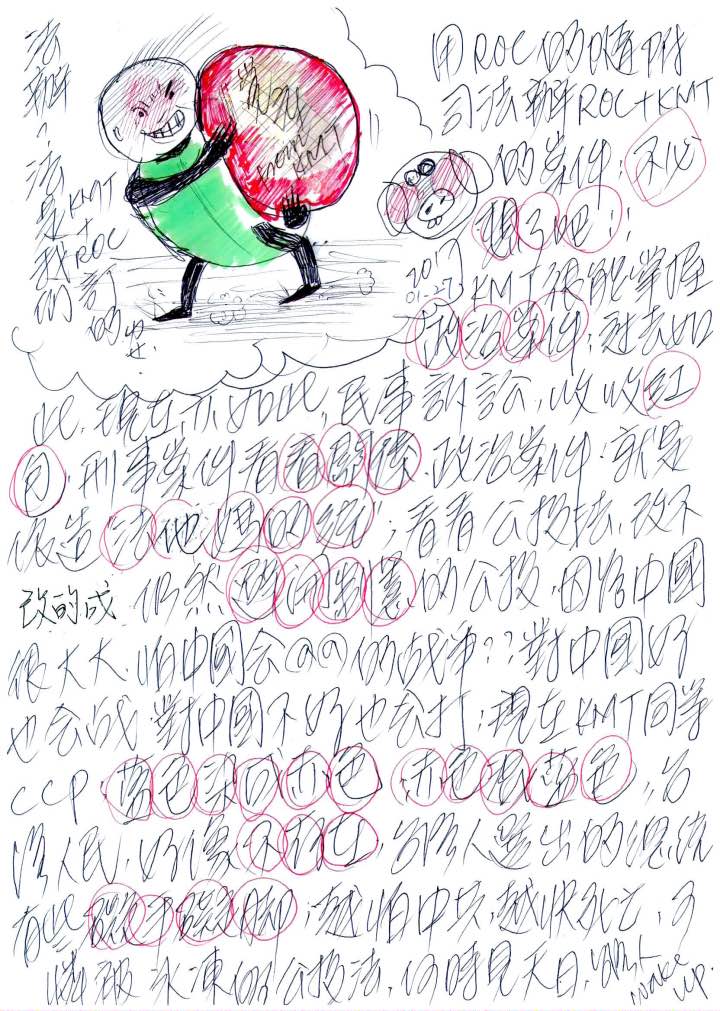 法辦?法是KMT+我ROC訂的
用ROC的
司法辦ROC+KMT
的案件,不必
想了吧!!
2017
01.27
KMT很能掌握
政治案件;過去如
此,現在亦如此,民事訴訟,收收紅
包,刑事案件看看關係,政治案件,就是
依造法他媽的統;看看公投法,改不
改的成 仍然避開制憲的公投,因為中國
很大大,怕中國会QQ的战爭??對中國好
也会战,對中國不好也会打;現在KMT同等
CCP,藍色未何赤色 赤色混藍色,台
灣人民,好像不存在,台灣人選出的總統
有些礙手礙腳;越怕中共,越快死亡,
被永凍的公投法,何時見天日,
wake
up.
from
KMT